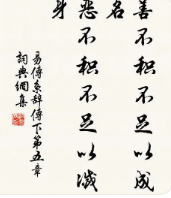 善不积不足以成
名
恶不积不足以灭
身
易傳系辞傳下第五章
詞典網集